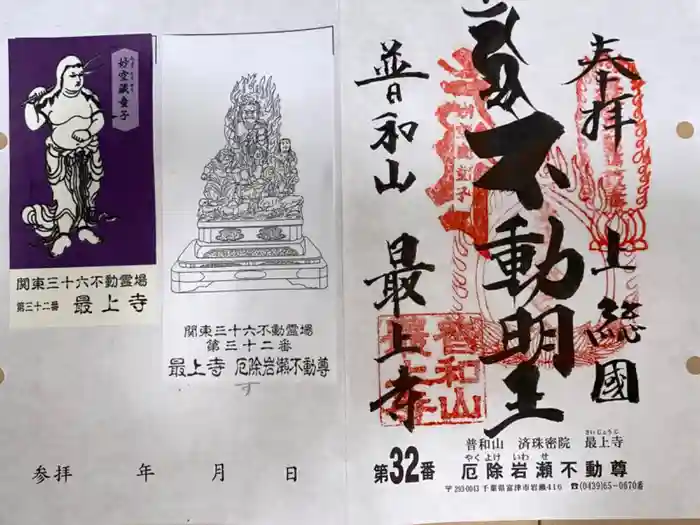 奉拝
上総國
不動明王
普和山
最上寺
普和山
最上寺
普和山 済珠密院 最上寺
さいじょうじ
第32番
厄除岩瀬不動尊
やくよけ いわせ
〒293-0043 千葉県富津市岩瀬416 ☎(0439)65-0670番
妙空蔵童子
関東三十六不動霊場
第三十二番 最上寺
関東三十六不動霊場
第三十二番
最上寺 厄除岩瀬不動尊
参拝 年 月 日